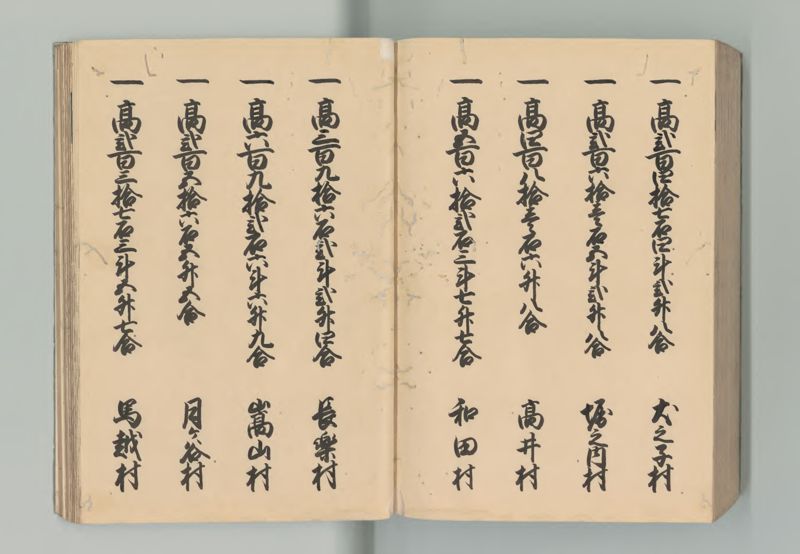 一 高弐百四拾七石四斗弐升八合 犬之子村
一 高弐百六拾壱石五斗弐升八合 堀之内村
一 高四百八拾壱石六升八合 高井村
一 高五百六拾弐石二斗七升七合 和田村
一 高三百九拾六石弐斗弐升四合 長楽村
一 高六百九拾弐石六斗六升九合 嵩山村
一 高弐百五拾六石五升五合 月ケ谷村
一 高弐百三拾七石三斗五升七合 馬越村